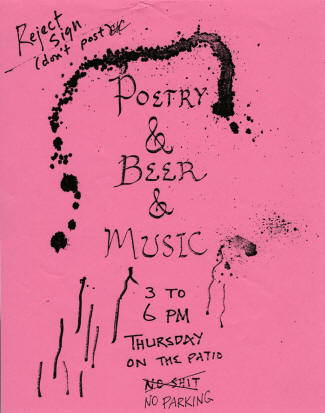 Reject
Sign
(don't post)
POETRY
&
BEER
&
MUSIC
3 TO
6 PM
THURSDAY
ON THE PATIO
NO SHIT
NO PARKING